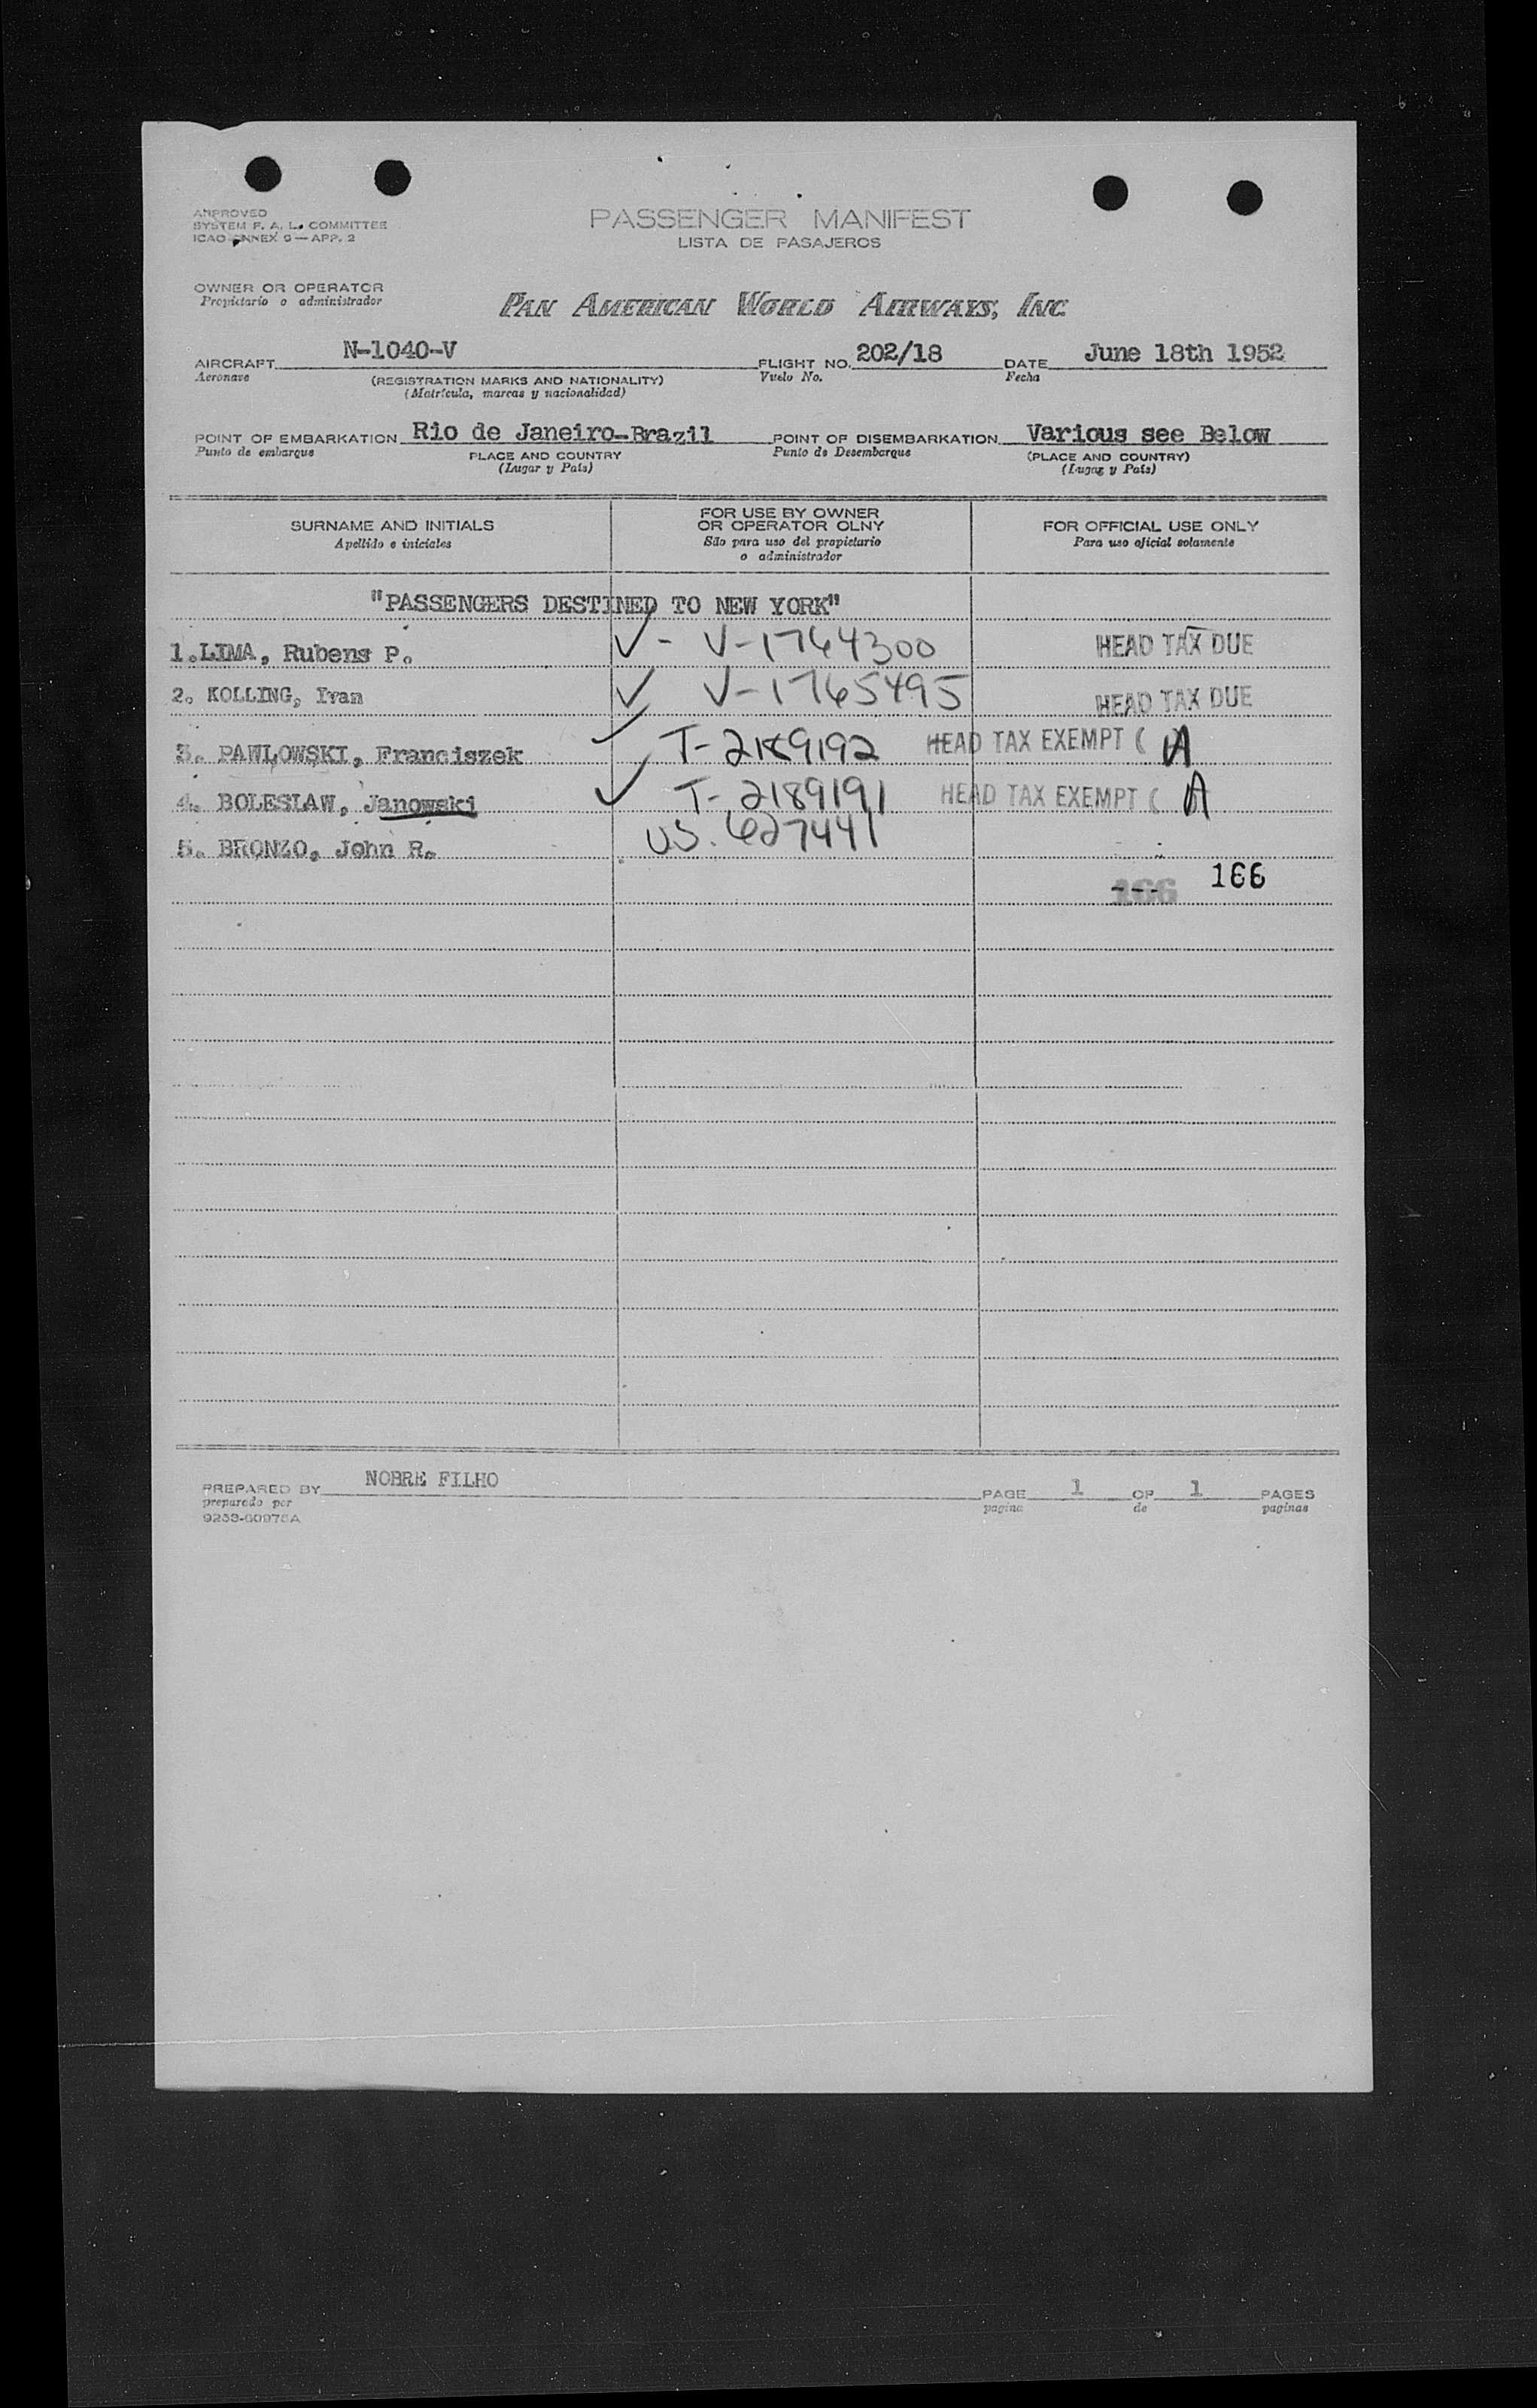 APPROVED
SYSTEM F. A. L. COMMITTEE
ICAO ANNEX 9 — APP. 2
PASSENGER MANIFEST
LISTA DE PASAJEROS
OWNER OR OPERATOR
Propietario o administrador
PAN AMERICAN WORLD AIRWAYS, INC
AIRCRAFT N-1040-V FLIGHT NO. 202/18 DATE June 18th 1952
Aeronave (REGISTRATION MARKS AND NATIONALITY) Vuelo No. Fecha
(Matrícula, marcas y nacionalidad)
POINT OF EMBARKATION Rio de Janeiro-Brazil POINT OF DISEMBARKATION Various see Below
Punto de embarque PLACE AND COUNTRY Punto de Desembarque (PLACE AND COUNTRY)
(Lugar y País) (Lugar y País)
SURNAME AND INITIALS
Apellido e iniciales
FOR USE BY OWNER
OR OPERATOR OLNY
São para uso del propietario
o administrador
FOR OFFICIAL USE ONLY
Para uso oficial solamente
"PASSENGERS DESTINED TO NEW YORK"
1.LIMA, Rubens P. ✓- V-1764300 HEAD TAX DUE
2. KOLLING, Ivan ✓ V-1765495 HEAD TAX DUE
3. PAWLOWSKI, Franciszek ✓ T-2189192 HEAD TAX EXEMPT ( A
4. BOLESLAW, Janowski ✓ T-2189191 HEAD TAX EXEMPT ( A
5. BRONZO, John R. US. 627441
166 166
PREPARED BY NOBRE FILHO PAGE 1 OF 1 PAGES
preparado por pagina de paginas